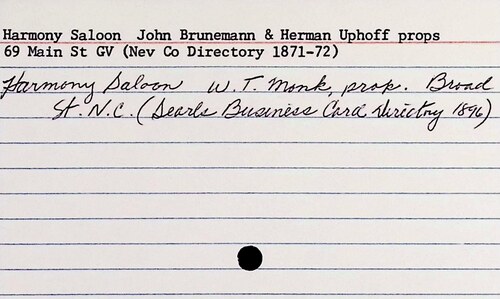 Harmony Saloon  John Brunemann & Herman Uphoff props
69 Main St GV (Nev Co Directory 1871-72)
Harmony Saloon  W. T. Monk, prop. Broad
St. N.C. (Searls Business Card Directory 1896)